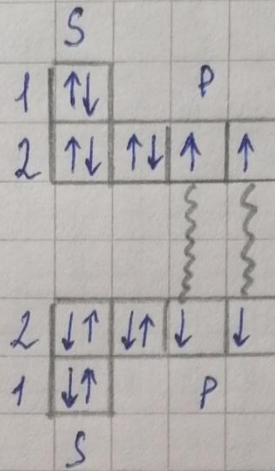 S
1 ↑↓ P
2 ↑↓ ↑↓ ↑ ↑
2 ↓↑ ↓↑ ↓ ↓
1 ↓↑ P
S